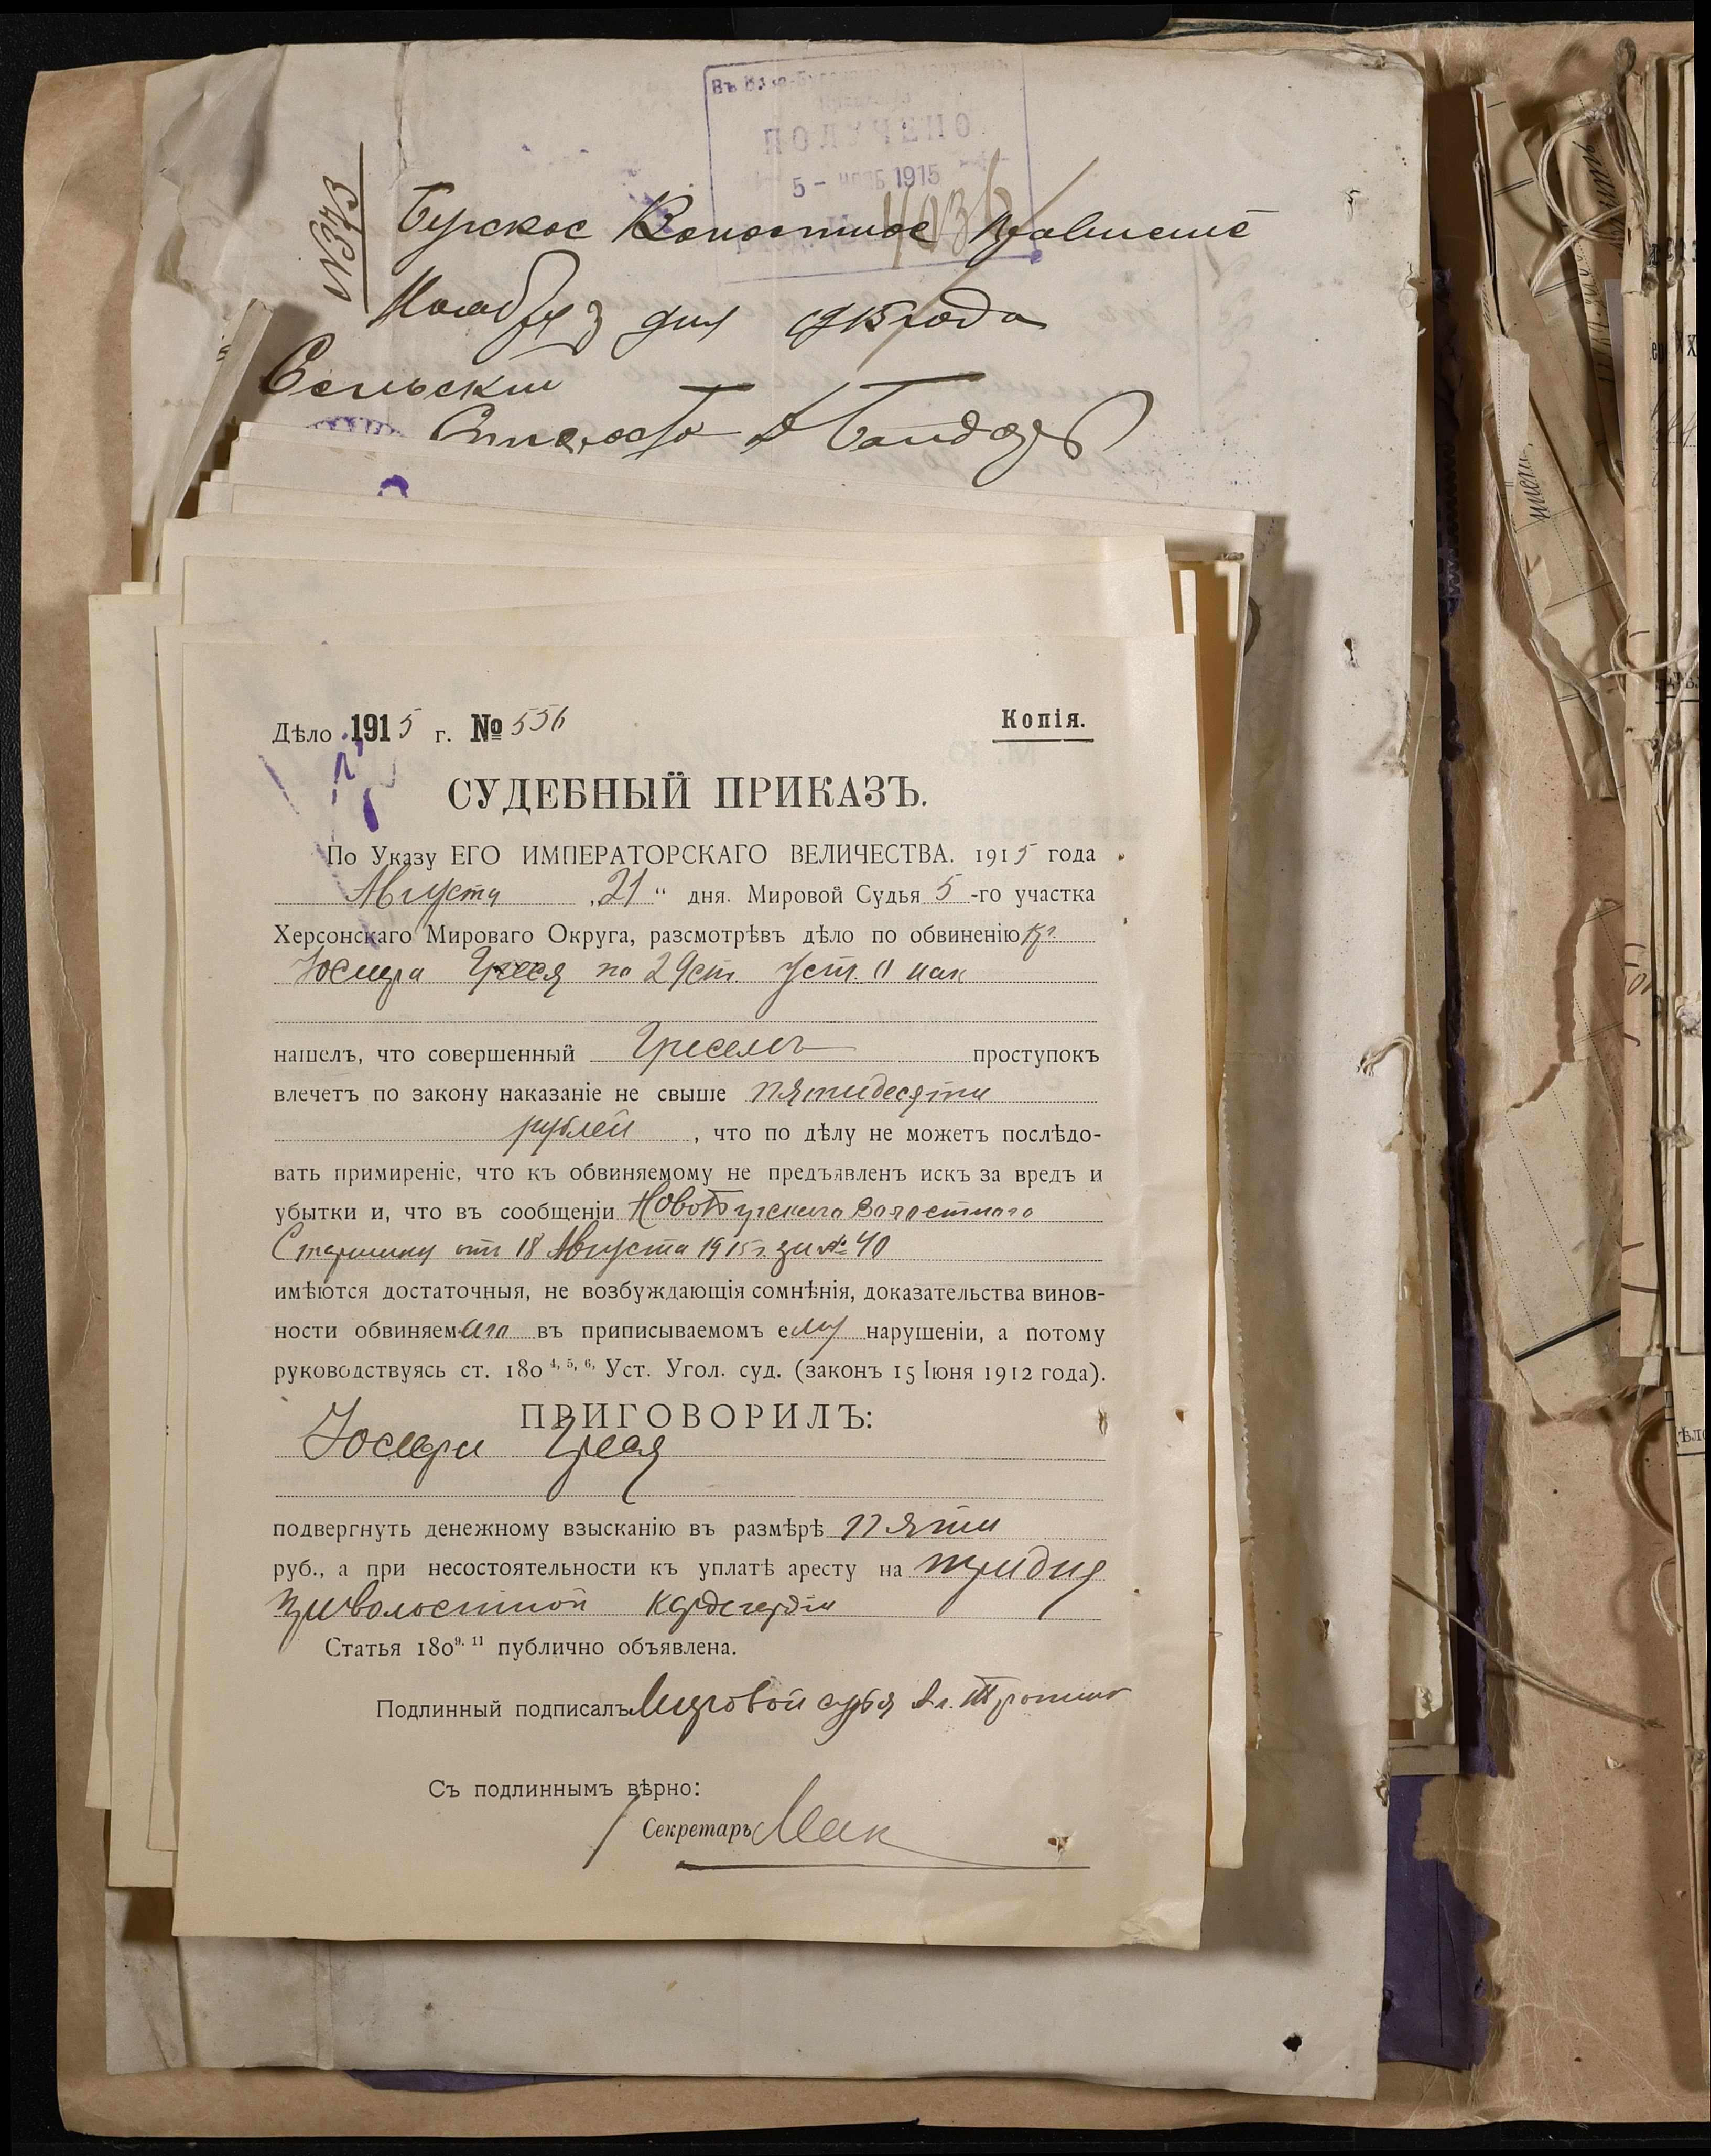 ПОЛУЧЕНО
5 - НОЯБ 1915
4036
№373
Бугское Волостное Правление
Ноября 3 дня 1915 года
Сельский
Староста
Дѣло 1915 г. № 556
Копія.
СУДЕБНЫЙ ПРИКАЗЪ.
По Указу ЕГО ИМПЕРАТОРСКАГО ВЕЛИЧЕСТВА. 1915 года
Августа „21“ дня. Мировой Судья 5-го участка
Херсонскаго Мироваго Округа, разсмотрѣвъ дѣло по обвиненію кр.
Іосифа по 29 ст. Уст. о нак
нашелъ, что совершенный проступокъ
влечетъ по закону наказаніе не свыше пятидесяти
рублей, что по дѣлу не можетъ послѣдо-
вать примиреніе, что къ обвиняемому не предъявленъ искъ за вредъ и
убытки и, что въ сообщеніи НовоБугскаго Волостнаго
Старшины отъ 18 Августа 1915 г. за № 40
имѣются достаточныя, не возбуждающія сомнѣнія, доказательства винов-
ности обвиняемаго въ приписываемомъ ему нарушеніи, а потому
руководствуясь ст. 180 4, 5, 6, Уст. Угол. суд. (законъ 15 Іюня 1912 года).
ПРИГОВОРИЛЪ:
Іосифа
подвергнуть денежному взысканію въ размѣрѣ пяти
руб., а при несостоятельности къ уплатѣ аресту на три дня
при волостной кордегардіи
Статья 180 9. 11 публично объявлена.
Подлинный подписалъ Мировой судья
Съ подлиннымъ вѣрно:
Секретарь